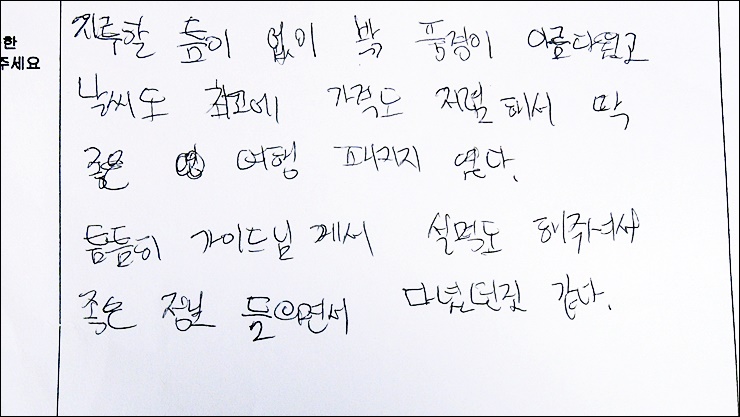 한
주세요
지루할 틈이 없이 밖 풍경이 아름다웠고
날씨도 최고에 가격도 저렴해서 딱
좋은 여행 패키지 였다.
틈틈히 가이드님께서 설명도 해주셔서
좋은 정보 들으면서 다녔던것 같다.